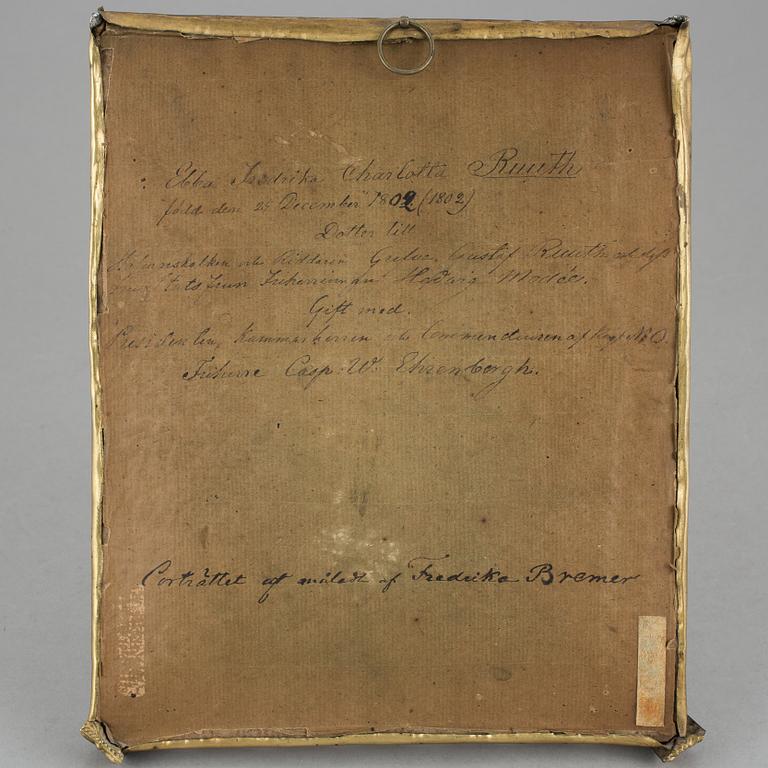 Ebba Fredrika Charlotta Ruuth
född den 25 December 1802. (1802)
Dotter till
och Riddaren Grefve Gustaf Ruuth och dess
Fru Friherrinnan Hedvig Modée.
Gift med.
Presidenten, Kammarherren och Commendeuren af Kongl. N.O.
Friherre Casp. W. Ehrenborgh.
Porträttet af måladt af Fredrika Bremer